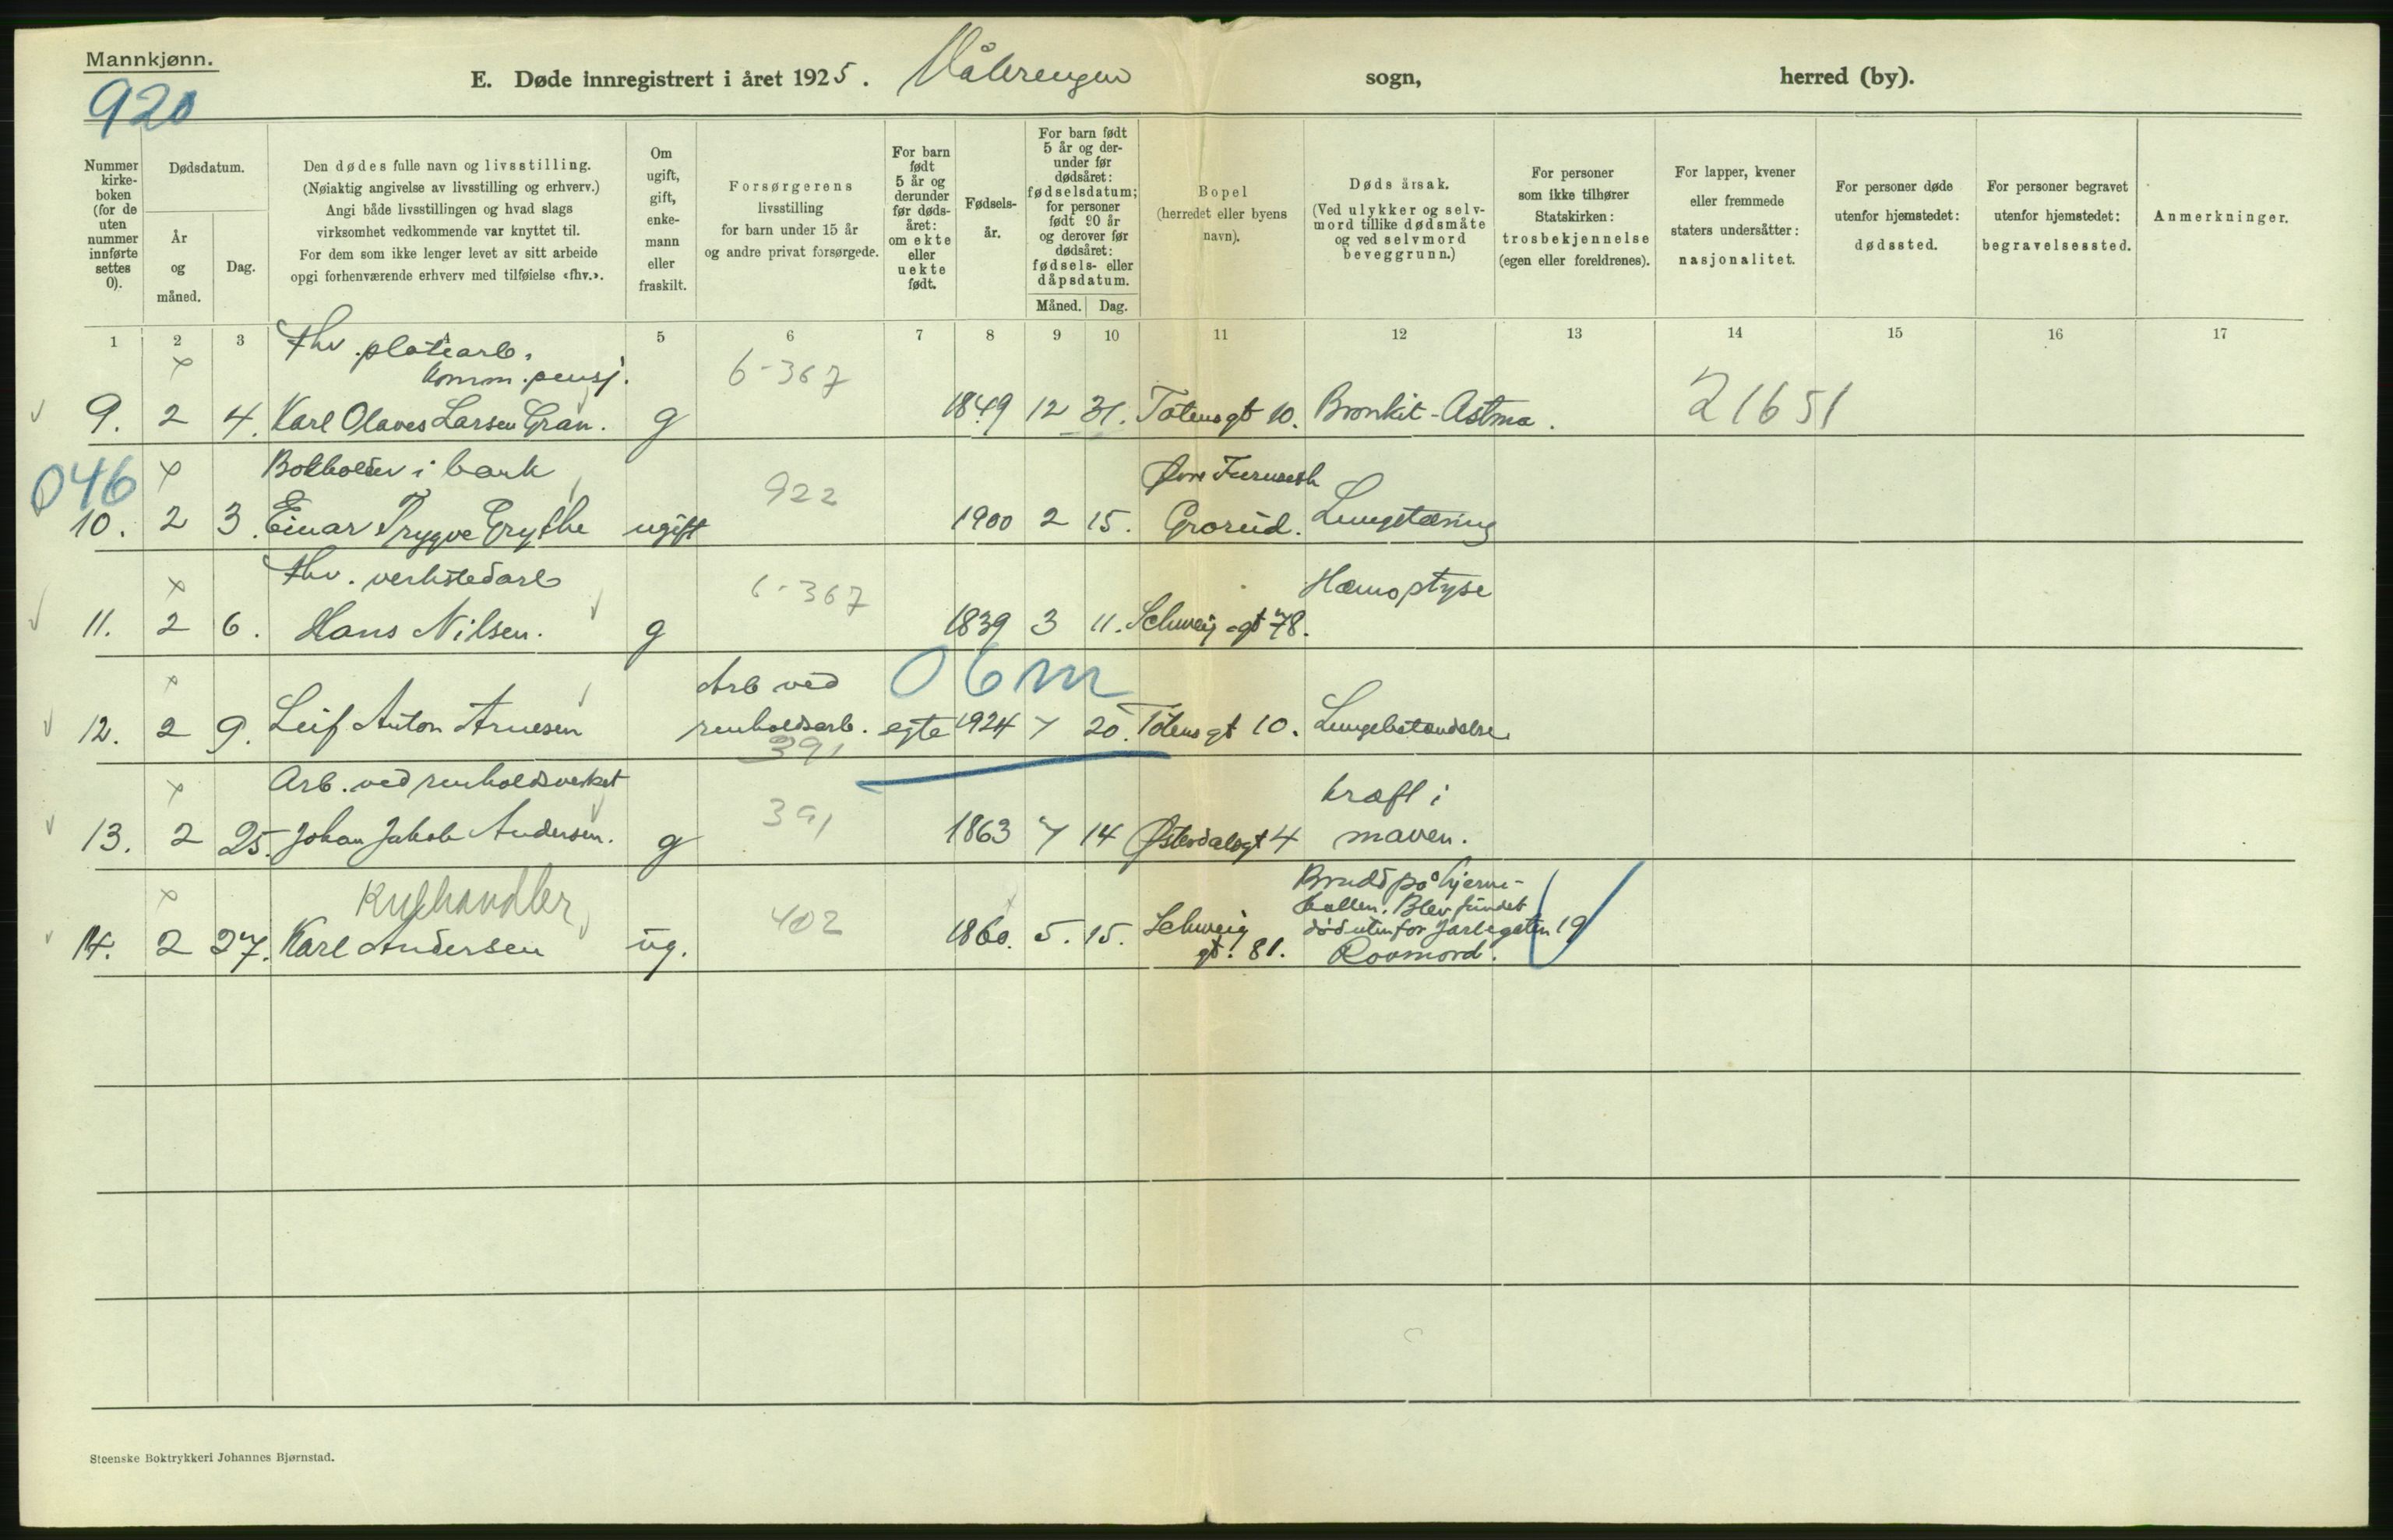 Mannkjønn.
920
E. Døde innregistrert i året 1925. Vålerengen sogn, herred (by).
Nummer kirke-boken (for de uten nummer innførte settes 0).
Dødsdatum.
År og måned.
Dag.
Den dødes fulle navn og livsstilling.
(Nøiaktig angivelse av livsstilling og erhverv.)
Angi både livsstillingen og hvad slags
virksomhet vedkommende var knyttet til.
For dem som ikke lenger levet av sitt arbeide
opgi forhenværende erhverv med tilføielse «fhv.».
Om ugift, gift, enke-mann eller fraskilt.
Forsørgerens
livsstilling
for barn under 15 år
og andre privat forsørgede.
For barn født 5 år og derunder før døds-året: om ekte eller uekte født.
Fødsels-år.
For barn født 5 år og der-under før dødsåret: fødselsdatum; for personer født 90 år og derover før dødsåret: fødsels- eller dåpsdatum.
Måned. Dag.
Bopel
(herredet eller byens
navn).
Døds årsak.
(Ved ulykker og selv-
mord tillike dødsmåte
og ved selvmord
beveggrunn.)
For personer
som ikke tilhører
Statskirken:
trosbekjennelse
(egen eller foreldrenes).
For lapper, kvener
eller fremmede
staters undersåtter:
nasjonalitet.
For personer døde
utenfor hjemstedet:
dødssted.
For personer begravet
utenfor hjemstedet:
begravelsessted.
Anmerkninger.
1 2 3 5 6 7 8 9 10 11 12 13 14 15 16 17
Fhv. platearb.
Komm. pensj. 6-367
9. 2 4. Karl Olaves Larsen Gran. g 1849 12 31. Totensgt 10. Bronkit-Astma. 21651
046 Bokholder i bank 922 Øvre
10. 2 3. Einar Trygve Grythe ugift 1900 2 15. Grorud. Lungetæring
Fhv. verkstedarb 6-367 Hæmoptyse
11. 2 6. Hans Nilsen. g 1839 3 11. Schweig-gt 78.
Arb ved 06m
12. 2 9. Leif Anton Arnesen renholdsarb. egte 1924 7 20. Totensgt 10. Lungebetændelse
391
Arb. ved renholdsverket 391 kræft i
13. 2 25. Johan Jakob Andersen. g 1863 7 14 Østerdalsgt 4 maven.
Kulhandler 402 Brudd på hjerne-
kallen. Blev fundet
14. 2 27. Karl Andersen ug. 1860. 5. 15. Schweig død utenfor Jarlegaten 19
gt. 81. Rovmord.
Steenske Boktrykkeri Johannes Bjørnstad.